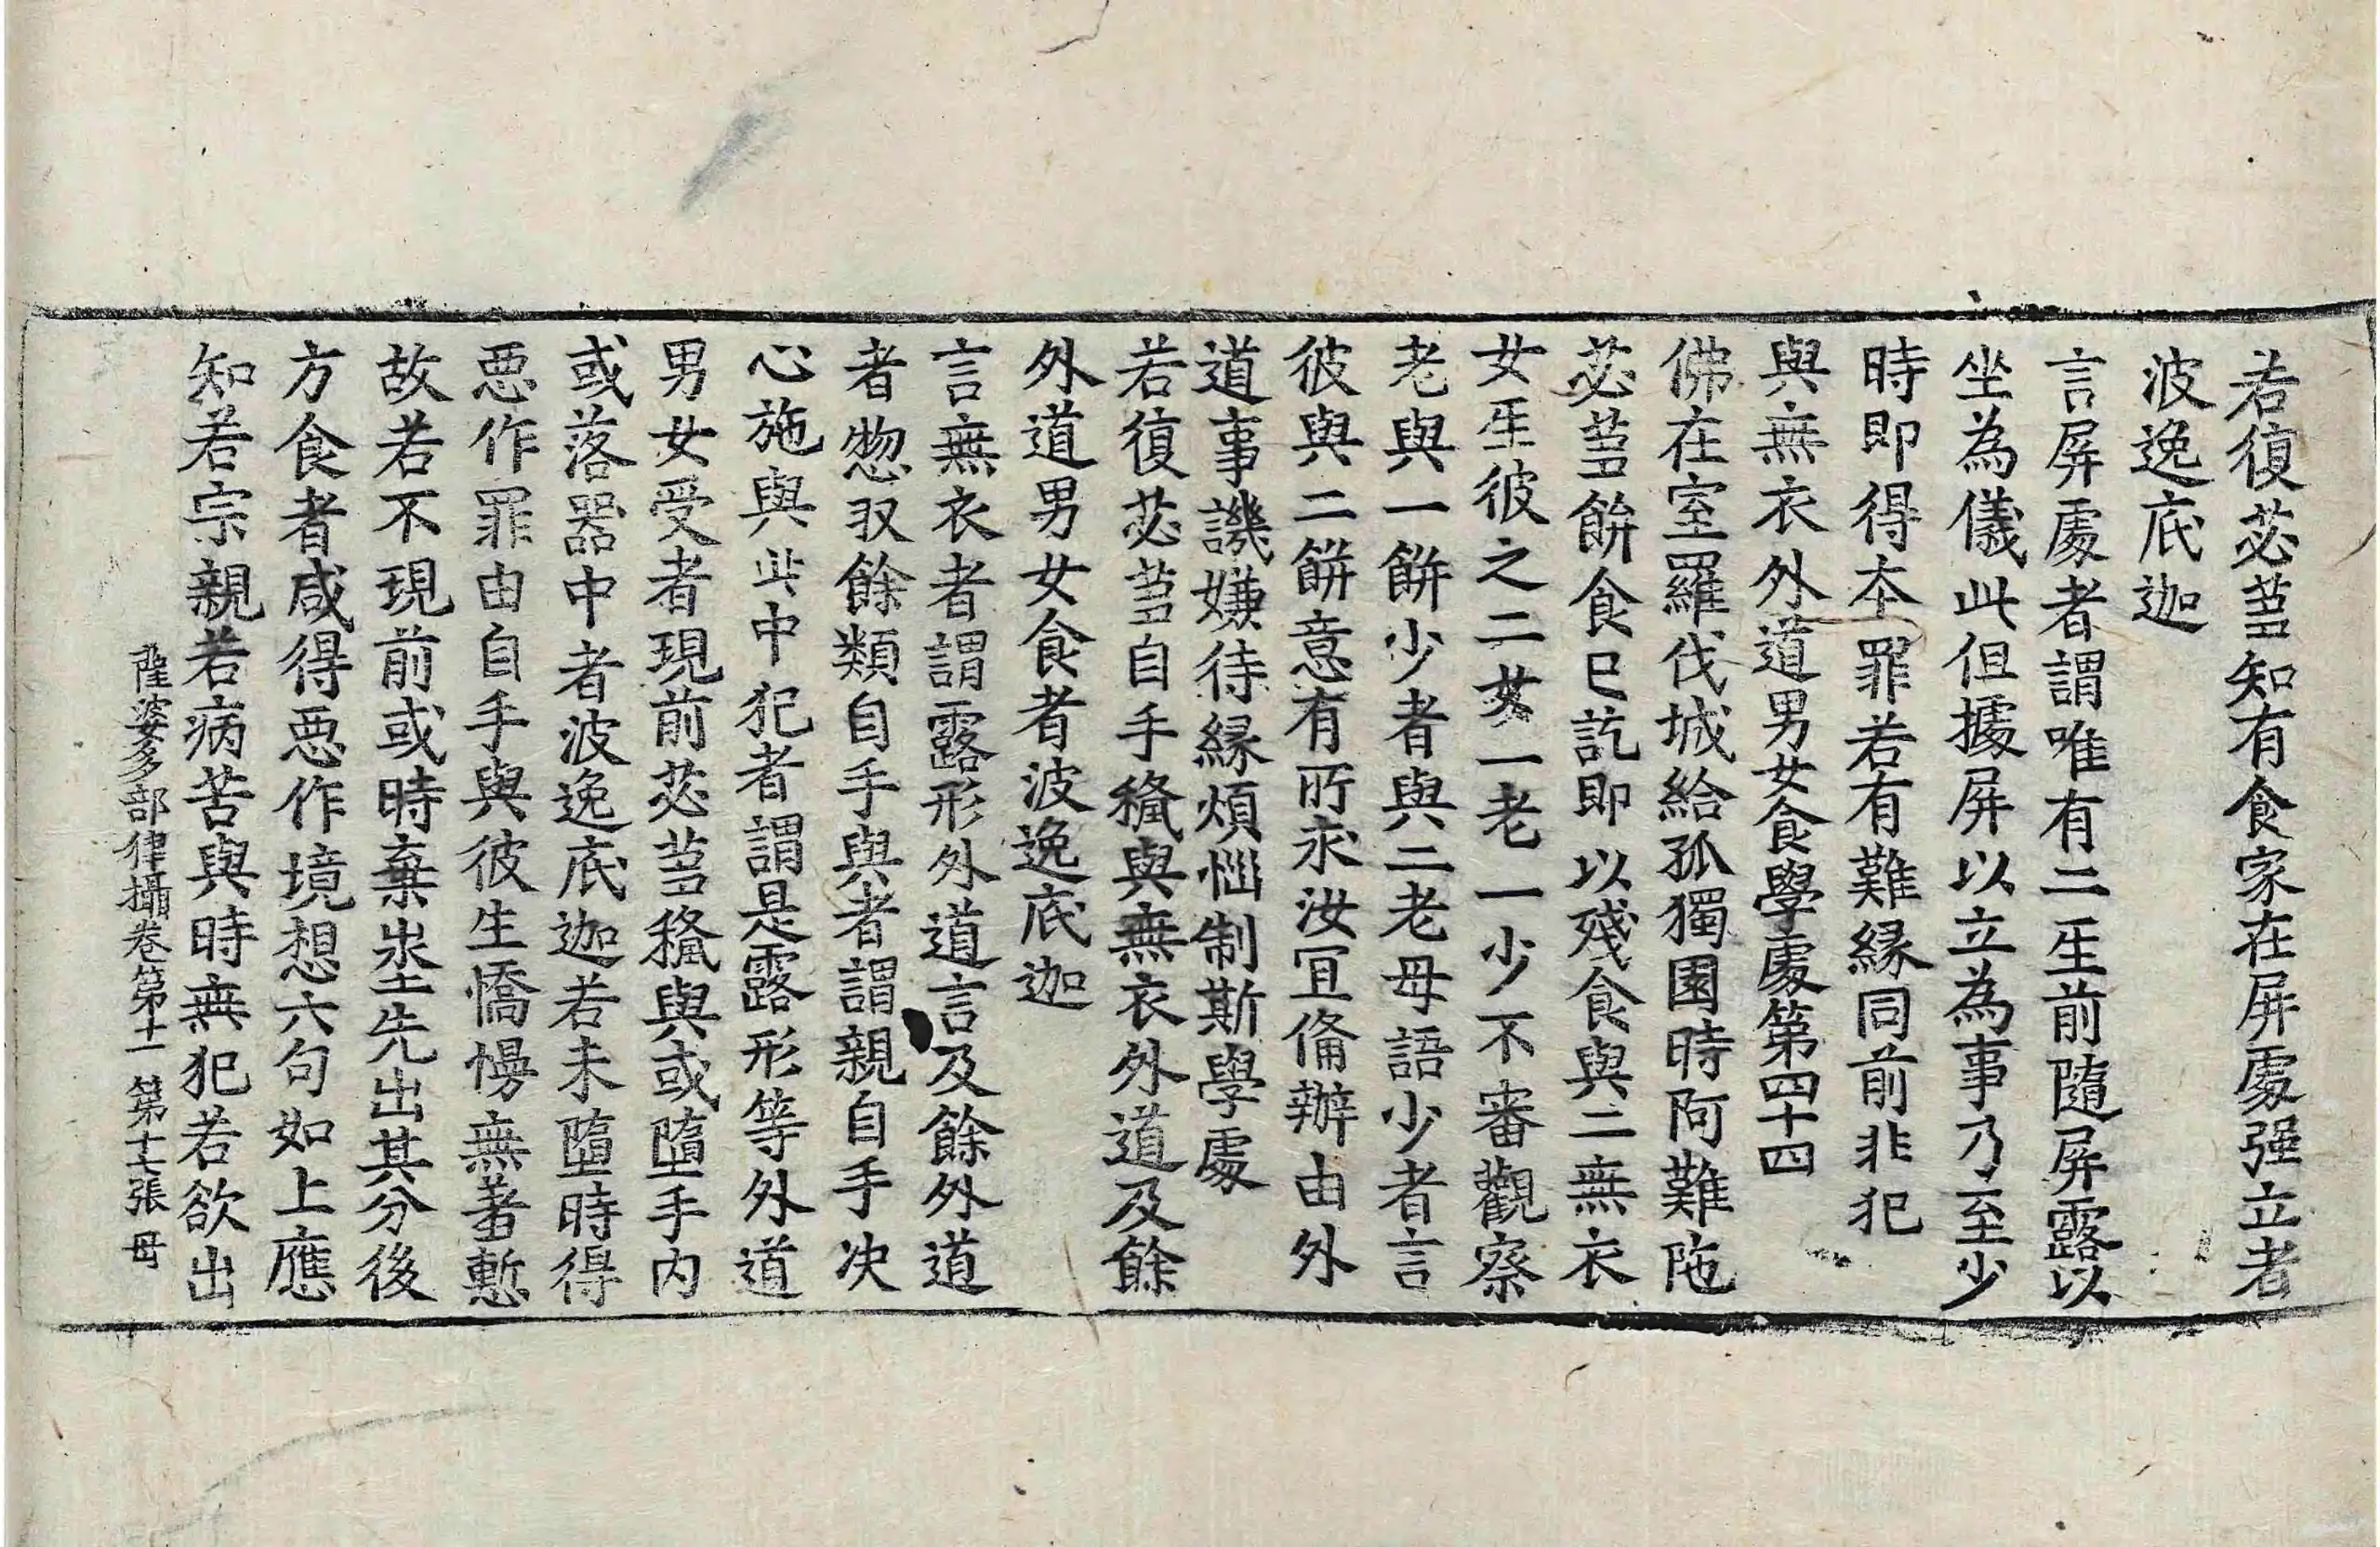 若復苾蒭知有食家在屏處强立者
波逸底迦
言屏處者謂唯有二生前隨屏露以
坐為儀此但據屏以立為事乃至少
時即得夲罪若有難縁同前非犯
與無衣外道男女食學處第四十四
佛在室羅伐城給孤獨園時阿難陁
苾蒭餅食已訖即以殘食與二無衣
女生彼之二女一老一少不審觀察
老與一餅少者與二老母語少者言
彼與二餅意有所求汝冝俻辦由外
道事譏嫌待縁煩惱制斯學處
若復苾蒭自手授與無衣外道及餘
外道男女食者波逸底迦
言無衣者謂露形外道言及餘外道
者惣収餘類自手與者謂親自手决
心施與此中犯者謂是露形等外道
男女受者現前苾蒭授與或墮手内
或落器中者波逸底迦若未墮時得
悪作罪由自手與彼生憍慢無羞慙
故若不現前或時棄坐先出其分後
方食者咸得悪作境想六句如上應
知若宗親若病苦與時無犯若欲出
薩婆多部律攝卷第十一 第十七張 毋